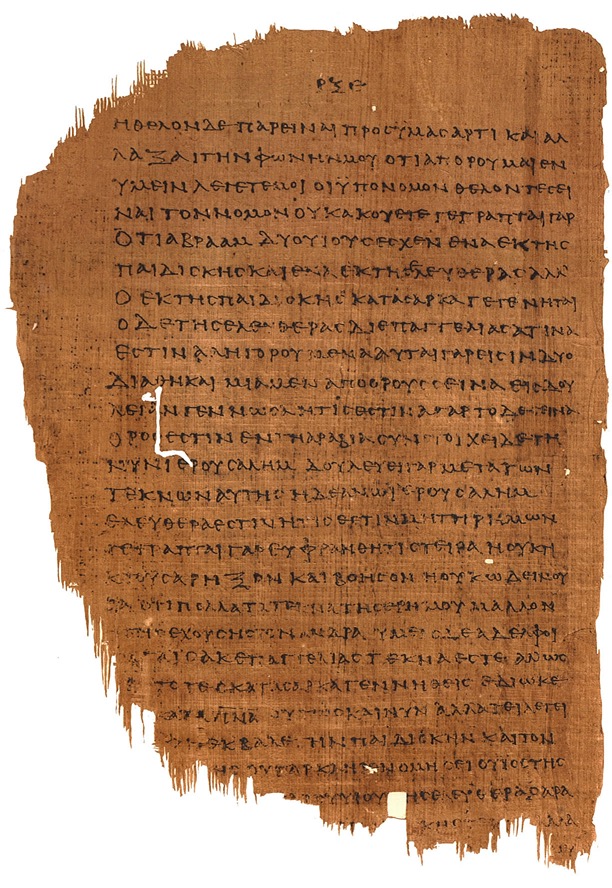 ΡΞΕ
ΗΘΕΛΟΝ ΔΕ ΠΑΡΕΙΝΑΙ ΠΡΟϹ ΥΜΑϹ ΑΡΤΙ ΚΑΙ ΑΛ
ΛΑΞΑΙ ΤΗΝ ΦΩΝΗΝ ΜΟΥ ΟΤΙ ΑΠΟΡΟΥΜΑΙ ΕΝ
ΥΜΕΙΝ ΛΕΓΕΤΕ ΜΟΙ ΟΙ ΫΠΟ ΝΟΜΟΝ ΘΕΛΟΝΤΕϹ ΕΙ
ΝΑΙ ΤΟΝ ΝΟΜΟΝ ΟΥΚ ΑΚΟΥΕΤΕ ΓΕΓΡΑΠΤΑΙ ΓΑΡ
ΟΤΙ ΑΒΡΑΑΜ ΔΥΟ ΥΙΟΥϹ ΕϹΧΕΝ ΕΝΑ ΕΚ ΤΗϹ
ΠΑΙΔΙϹΚΗϹ ΚΑΙ ΕΝΑ ΕΚ ΤΗϹ ΕΛΕΥΘΕΡΑϹ ΑΛΛ
Ο ΕΚ ΤΗϹ ΠΑΙΔΙϹΚΗϹ ΚΑΤΑ ϹΑΡΚΑ ΓΕΓΕΝΝΗΤΑΙ
Ο ΔΕ ΤΗϹ ΕΛΕΥΘΕΡΑϹ ΔΙ ΕΠΑΓΓΕΛΙΑϹ ΑΤΙΝΑ
ΕϹΤΙΝ ΑΛΛΗΓΟΡΟΥΜΕΝΑ ΑΥΤΑΙ ΓΑΡ ΕΙϹΙΝ ΔΥΟ
ΔΙΑΘΗΚΑΙ ΜΙΑ ΜΕΝ ΑΠΟ ΟΡΟΥϹ ϹΕΙΝΑ ΕΙϹ ΔΟΥ
ΛΕΙΑΝ ΓΕΝΝΩϹΑ ΗΤΙϹ ΕϹΤΙΝ ΑΓΑΡ ΤΟ ΔΕ ϹΕΙΝΑ
ΟΡΟϹ ΕϹΤΙΝ ΕΝ ΤΗ ΑΡΑΒΙΑ ϹΥΝϹΤΟΙΧΕΙ ΔΕ ΤΗ
ΝΥΝ ΙΕΡΟΥϹΑΛΗΜ ΔΟΥΛΕΥΕΙ ΓΑΡ ΜΕΤΑ ΤΩΝ
ΤΕΚΝΩΝ ΑΥΤΗϹ Η ΔΕ ΑΝΩ ΙΕΡΟΥϹΑΛΗΜ
ΕΛΕΥΘΕΡΑ ΕϹΤΙΝ ΗΤΙϹ ΕϹΤΙΝ ΜΗΤΗΡ ΗΜΩΝ
ΓΕΓΡΑΠΤΑΙ ΓΑΡ ΕΥΦΡΑΝΘΗΤΙ ϹΤΕΙΡΑ Η ΟΥΚ
ΡΗΞΟΝ ΚΑΙ ΒΟΗϹΟΝ Η ΟΥΚ ΩΔΕΙΝΟΥ
ΠΟΛΛΑ ΤΑ ΤΕΚΝΑ ΤΗϹ ΕΡΗΜΟΥ ΜΑΛΛΟΝ
ΕΧΟΥϹΗϹ ΤΟΝ ΑΝΔΡΑ ΥΜΕΙϹ ΔΕ ΑΔΕΛΦΟΙ
ΕΠΑΓΓΕΛΙΑϹ ΤΕΚΝΑ ΕϹΤΕ ΑΛΛ ΩϹ
ΚΑΤΑ ϹΑΡΚΑ ΓΕΝΝΗΘΕΙϹ ΕΔΙΩΚΕ
ΟΥΤΩϹ ΚΑΙ ΝΥΝ ΑΛΛΑ ΤΙ ΛΕΓΕΙ
ΕΚΒΑΛΕ ΤΗΝ ΠΑΙΔΙϹΚΗΝ ΚΑΙ ΤΟΝ
ΓΑΡ ΜΗ ΚΛΗΡΟΝΟΜΗϹΕΙ Ο ΥΙΟϹ ΤΗϹ
ΕΛΕΥΘΕΡΑϹ ΑΡΑ